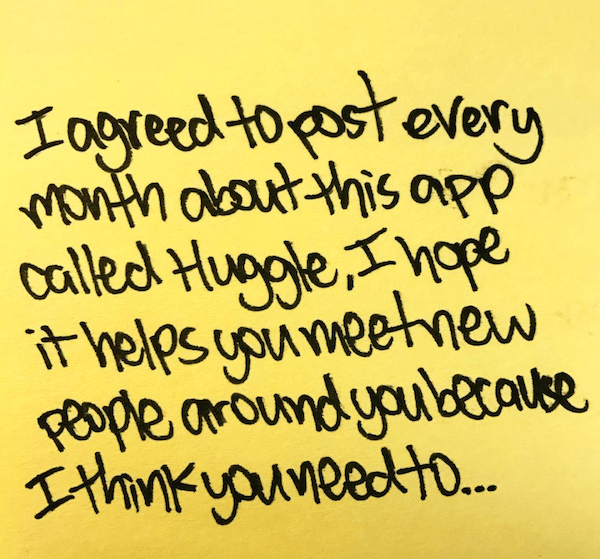 I agreed to post every
month about this app
called Huggle, I hope
it helps you meet new
people around you because
I think you need to...